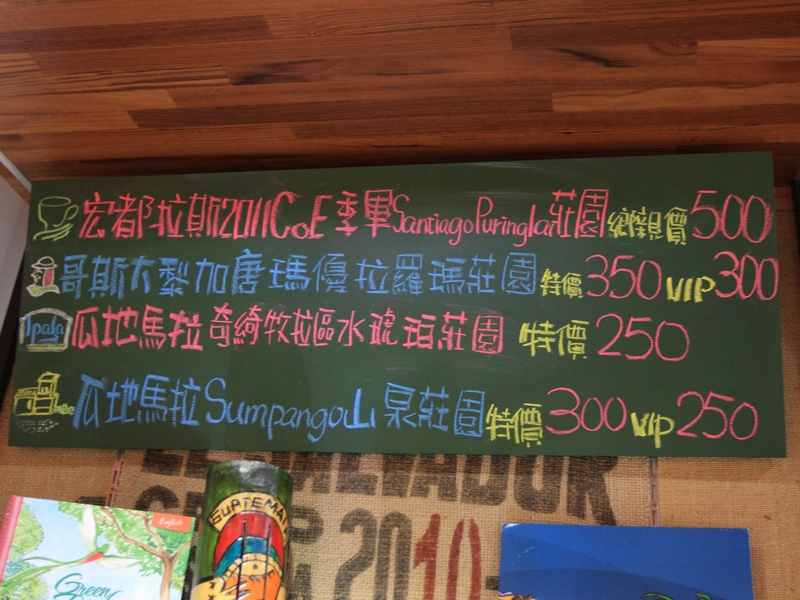 宏都拉斯2011CoE季軍Santiago Puringla莊園鄉親價500
哥斯大黎加唐瑪優拉羅瑪莊園特價350 VIP300
Ipala瓜地馬拉奇綺牧拉區水琥珀莊園 特價250
瓜地馬拉Sumpango山泉莊園特價300 VIP250
EL SALVADOR
2010-
GUATEMALA
English
Green